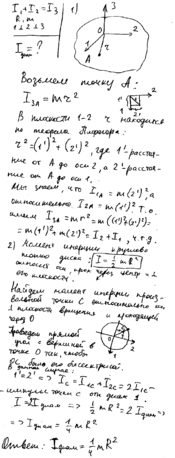 I₁+I₂=I₃
R, m
1⊥2⊥3
I диам = ?
1)
3
0
2
1
A
Возьмем точку A:
I₃A = mr²
В плоскости 1-2 r находится
по теореме Пифагора:
r² = (1')² + (2')², где 1'-расстоя-
ние от A до оси 2, а 2'-расстоя-
ние от A до оси 1.
Мы знаем, что I₁A = m(2')², а
относительно I₂A = m(1')². Т.о.
имеем I₃A = mr² = m((1')²+(2')²)=
= m(1')²+m(2')² = I₂+I₁, ч.т.д.
2) Момент инерции
тонкого диска: I = ½ mR²
относ. оси, прох. через центр и ⊥
его плоскости.
Найдем момент инерции произ-
вольной точки C относительно оси
⊥ плоскости вращения и проходящей
через O
Проведем прямой
угол с вершиной в
точке O так, чтобы
OC было его биссектрисой.
1'=2' => I C = I₁C + I₂C = 2I₁C -
точки C отн. диам 1.
I = 2I диам => ½ mR² = 2 I диам =>
=> I диам = ¼ mR²
Ответ: I диам = ¼ mR²